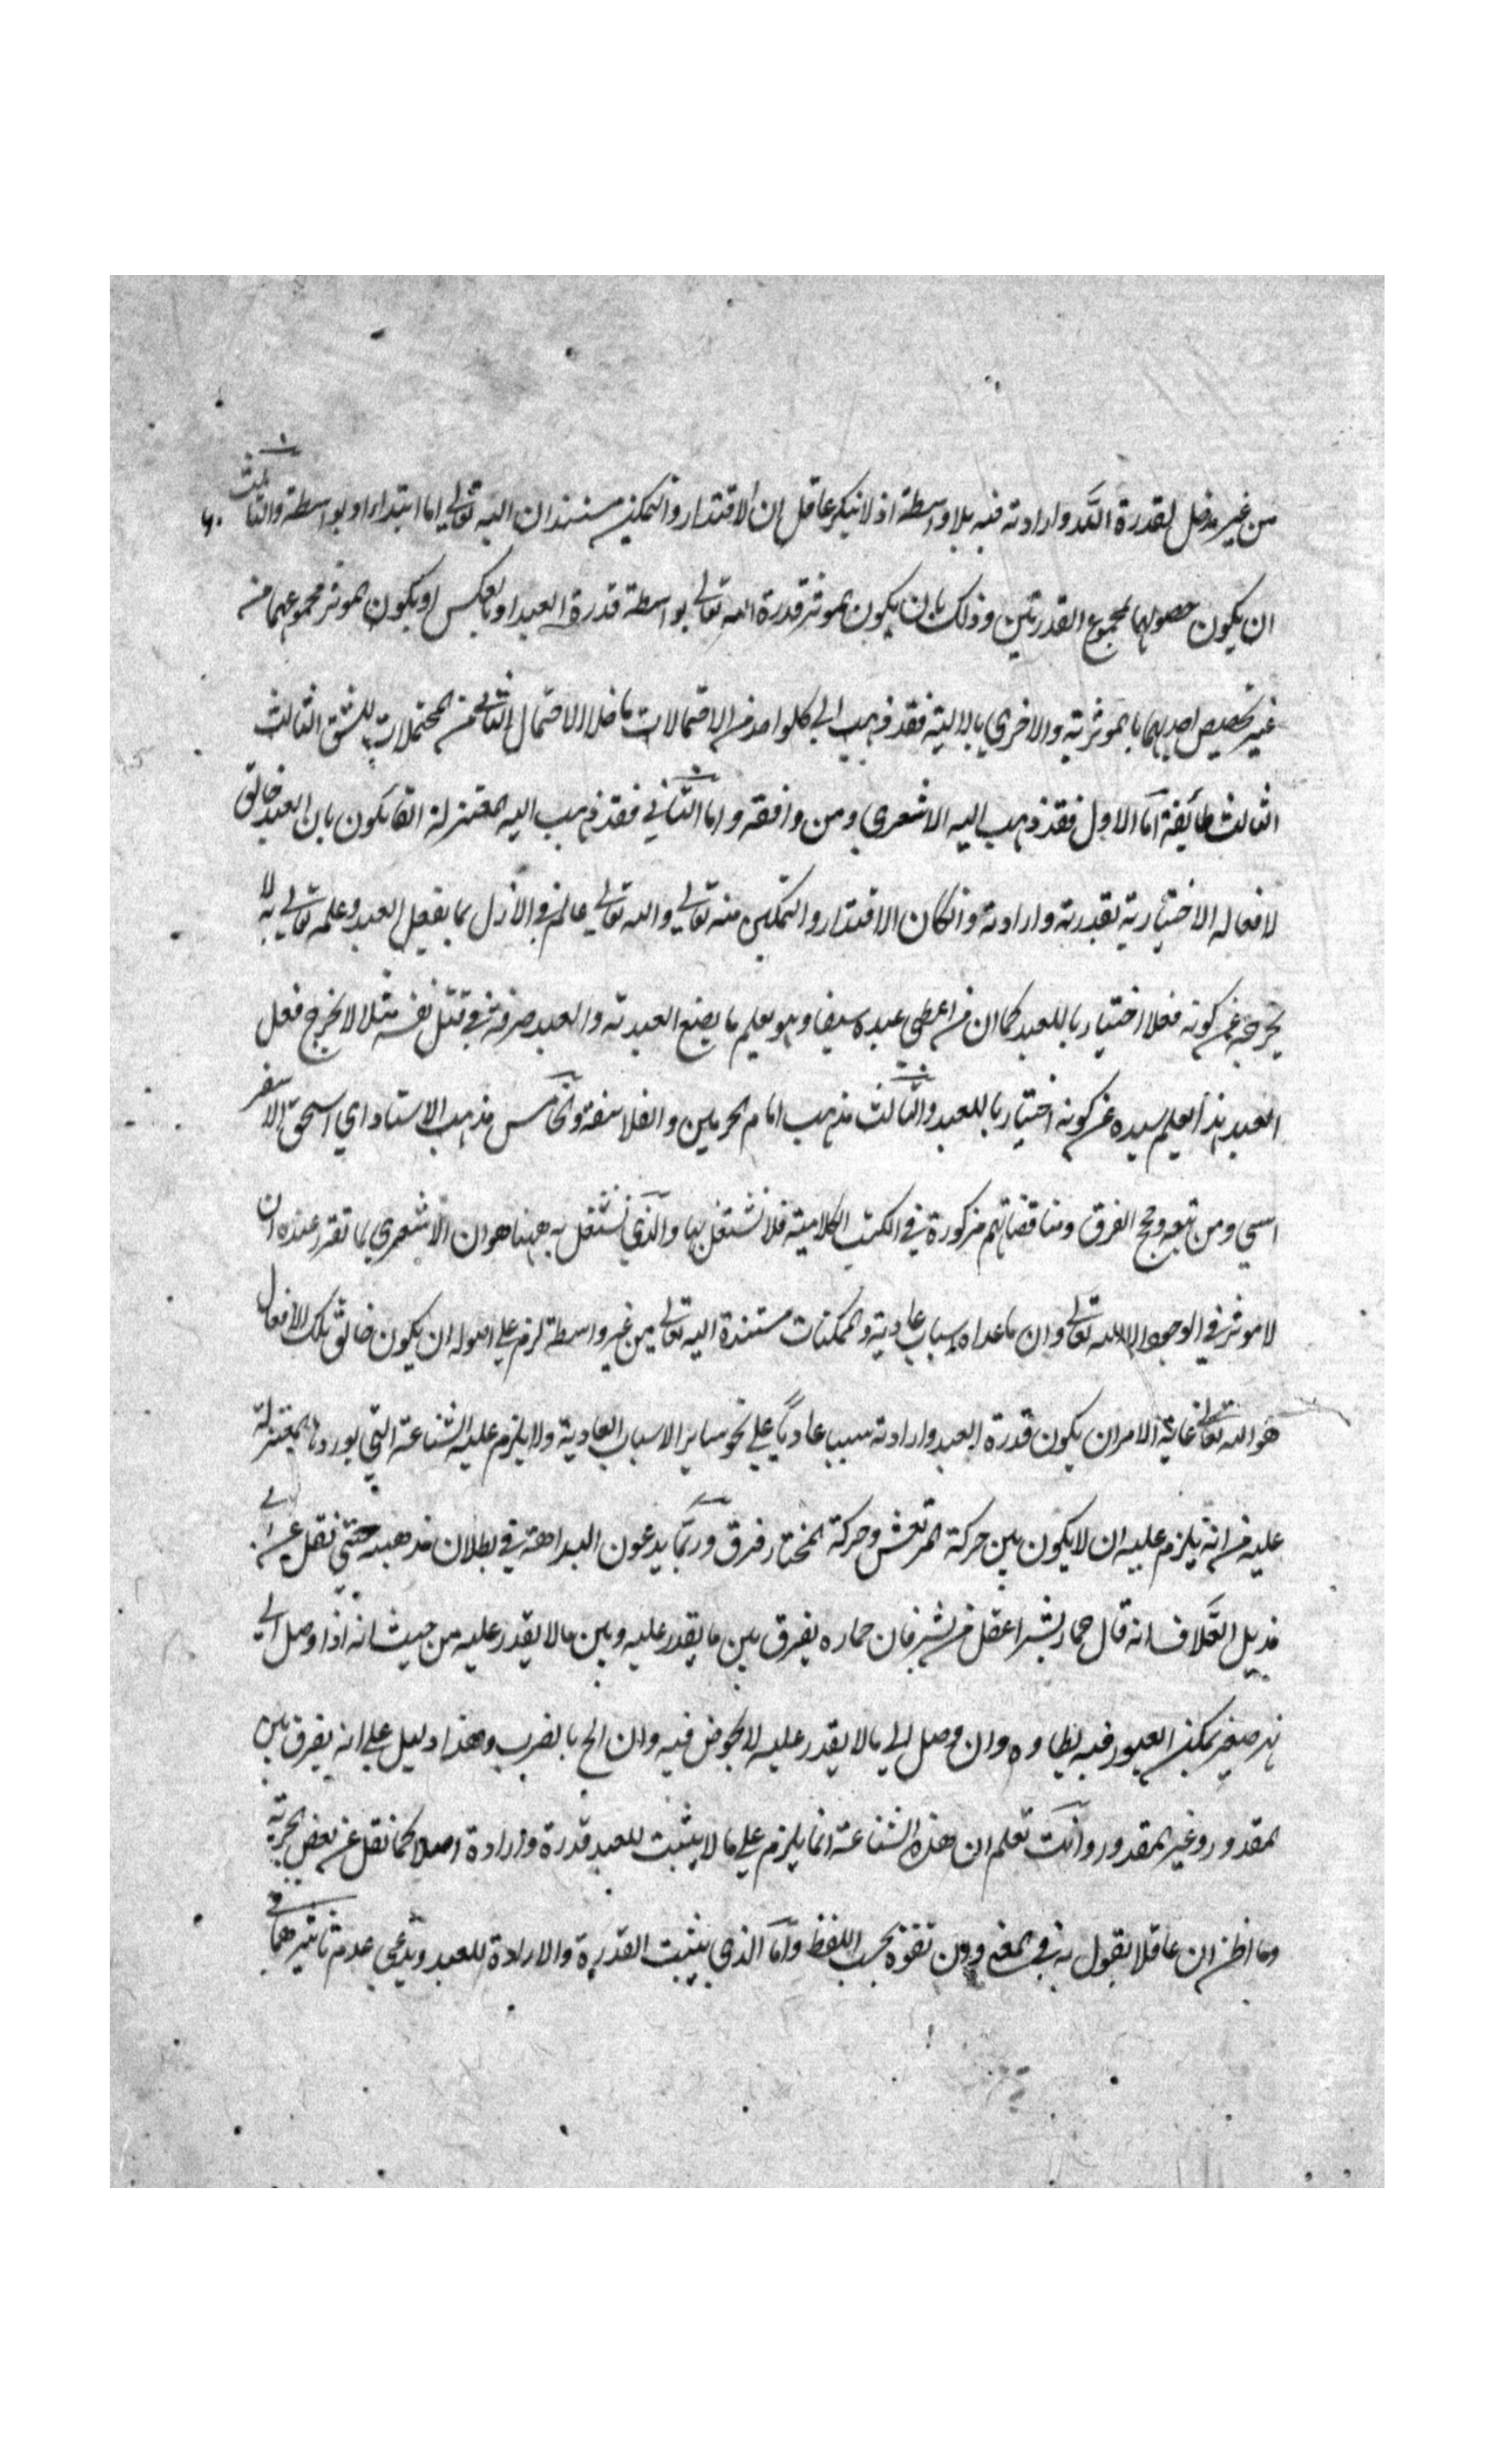 من غير مدخل لقدرة الله وارادته فيه بلا واسطة اذ لا ينكر عاقل ان الاقتدار والتمكين مستندان اليه تعالى اما ابتداء او بواسطة والثالث
ان يكون حصولها بمجموع القدرتين وذلك بان يكون المؤثر قدرة الله تعالى بواسطة قدرة العبد او بالعكس او يكون المؤثر مجموعهما من
غير تخصيص احديهما بالموثرية والاخرى بالالية فقد ذهب الى كل واحد من الاحتمالات ما خلا الاحتمال الثاني من المحتملات للشق الثالث
الثالث طائفة اما الاول فقد ذهب اليه الاشعري ومن وافقه واما الثاني فقد ذهب اليه المعتزلة القائلون بان العبد خالق
لافعاله الاختيارية بقدرته وارادته وان كان الاقتدار والتمكين منه تعالى والله تعالى عالم في الازل بما يفعل العبد وعلمه تعالى به لا
يخرجه عن كونه فعلا اختياريا للعبد كما ان من اعطى عبده سيفا وهو يعلم ما يصنع العبد به والعبد صرفه في قتل نفس مثلا لا يخرج فعل
العبد بهذا لعلم سيده عن كونه اختياريا للعبد والثالث مذهب امام الحرمين والفلاسفة والخامس مذهب الاستاد ابي اسحق الاسفر
اسي ومن تبعه وحجج الفرق ومناقضاتهم مذكورة في الكتب الكلامية فلا نشتغل بها والذي نشتغل به ههنا هو ان الاشعري لما تقرر عنده ان
لا موثر في الوجود الا الله تعالى وان ما عداه اسباب عادية والممكنات مستندة اليه تعالى من غير واسطة لزم على اصوله ان يكون خالق تلك الافعال
هو الله تعالى غاية الامر ان يكون قدرة العبد وارادته سببا عاديا على نحو ساير الاسباب العادية ولا يلزم عليه الشناعة التي يوردها المعتزلة
عليه من انه يلزم عليه ان لا يكون بين حركة المرتعش وحركة المختار فرق وربما يدعون البداهة في بطلان مذهبه حتى نقل عن ابي
هذيل العلاف انه قال حمار بشر اعقل من بشر فان حماره يفرق بين ما يقدر عليه وبين ما لا يقدر عليه من حيث انه اذا وصل الى
نهر صغير يمكن العبور فيه يطاوه وان وصل الى ما لا يقدر عليه لا يخوض فيه وان الح بالضرب وهذا دليل على انه يفرق بين
المقدور وغير المقدور وانت تعلم ان هذه الشناعة انما يلزم على ما لا يثبت للعبد قدرة وارادة اصلا كما نقل عن بعض الجبرية
وما اظن ان عاقلا يقول به في المعنى وان تفوه بحسب اللفظ واما الذي يثبت القدرة والارادة للعبد ويدعى عدم تاثيرهما في